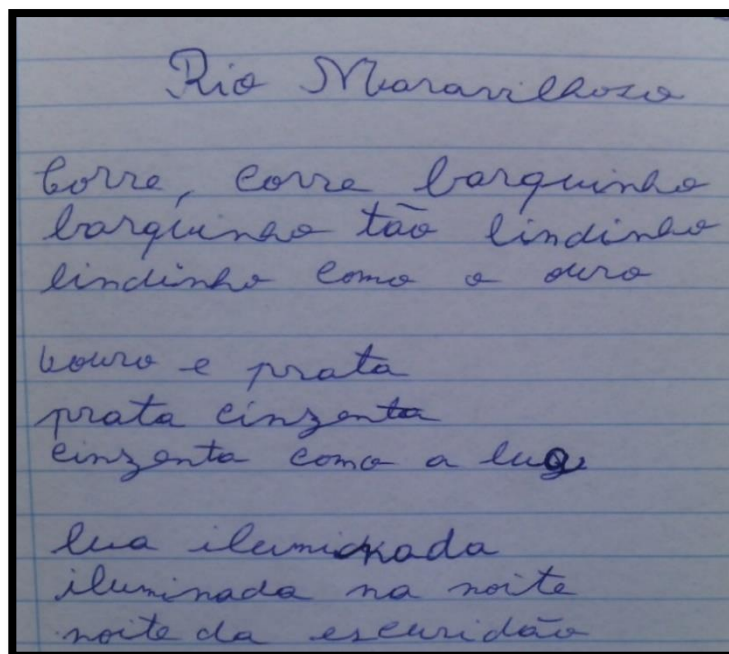 Rio Maravilhoso
Corre, corre barquinho
barquinho tão lindinho
lindinho como o ouro
ouro e prata
prata cinzenta
cinzenta como a lua
lua iluminada
iluminada na noite
noite da escuridão